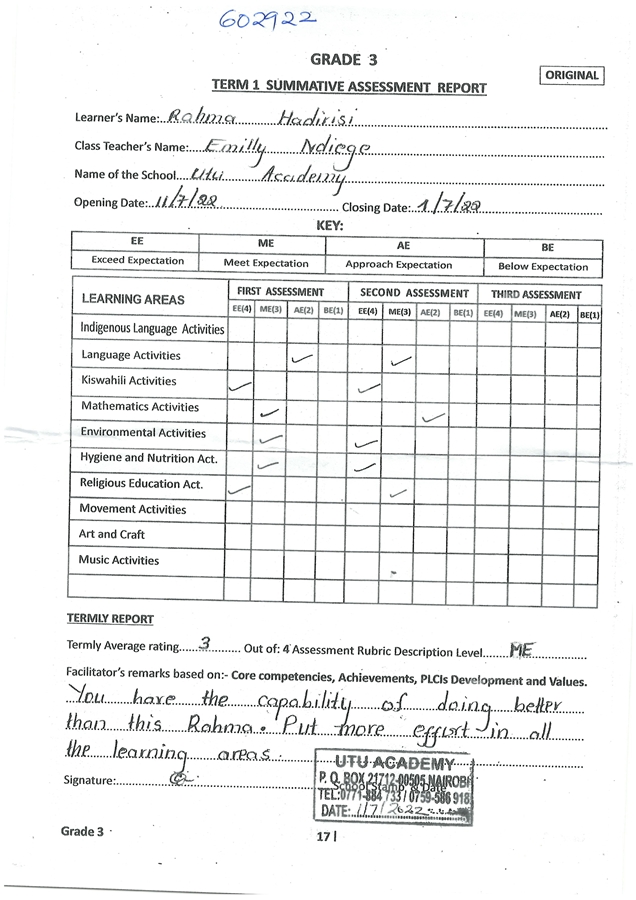 602922
GRADE 3
ORIGINAL
TERM 1 SUMMATIVE ASSESSMENT REPORT
Learner's Name: Rahma Hadirisi
Class Teacher's Name: Emilly Ndiege
Name of the School Utu Academy
Opening Date: 11/7/22 Closing Date: 1/7/22
KEY:
EE ME AE BE
Exceed Expectation Meet Expectation Approach Expectation Below Expectation
LEARNING AREAS FIRST ASSESSMENT SECOND ASSESSMENT THIRD ASSESSMENT
EE(4) ME(3) AE(2) BE(1) EE(4) ME(3) AE(2) BE(1) EE(4) ME(3) AE(2) BE(1)
Indigenous Language Activities
Language Activities ✓ ✓
Kiswahili Activities ✓ ✓
Mathematics Activities ✓ ✓
Environmental Activities ✓ ✓
Hygiene and Nutrition Act. ✓ ✓
Religious Education Act. ✓ ✓
Movement Activities
Art and Craft
Music Activities
TERMLY REPORT
Termly Average rating 3 Out of: 4 Assessment Rubric Description Level ME
Facilitator's remarks based on:- Core competencies, Achievements, PLCIs Development and Values.
You have the capability of doing better
than this Rahma. Put more effort in all
the learning areas.
Signature:
UTU ACADEMY
P. O. BOX 21712-00505 NAIROBI
School Stamp & Date
TEL:0771-884 733 / 0759-586 918
DATE: 1/7/2022
Grade 3
17